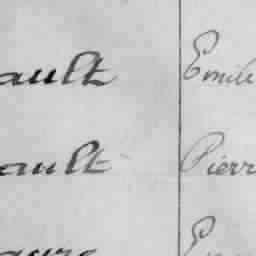 ault Emile
ault Pierr